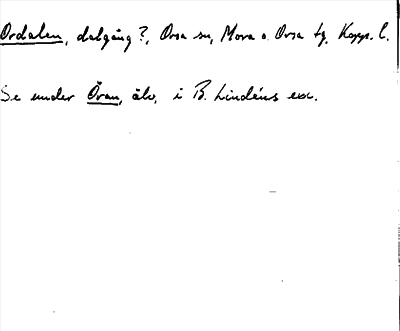 Oredalen, dalgång?, Orsa sn, Mora o. Orsa tg. Kopp. l.
Se under Öran, älv, i B. Lindéns exc.